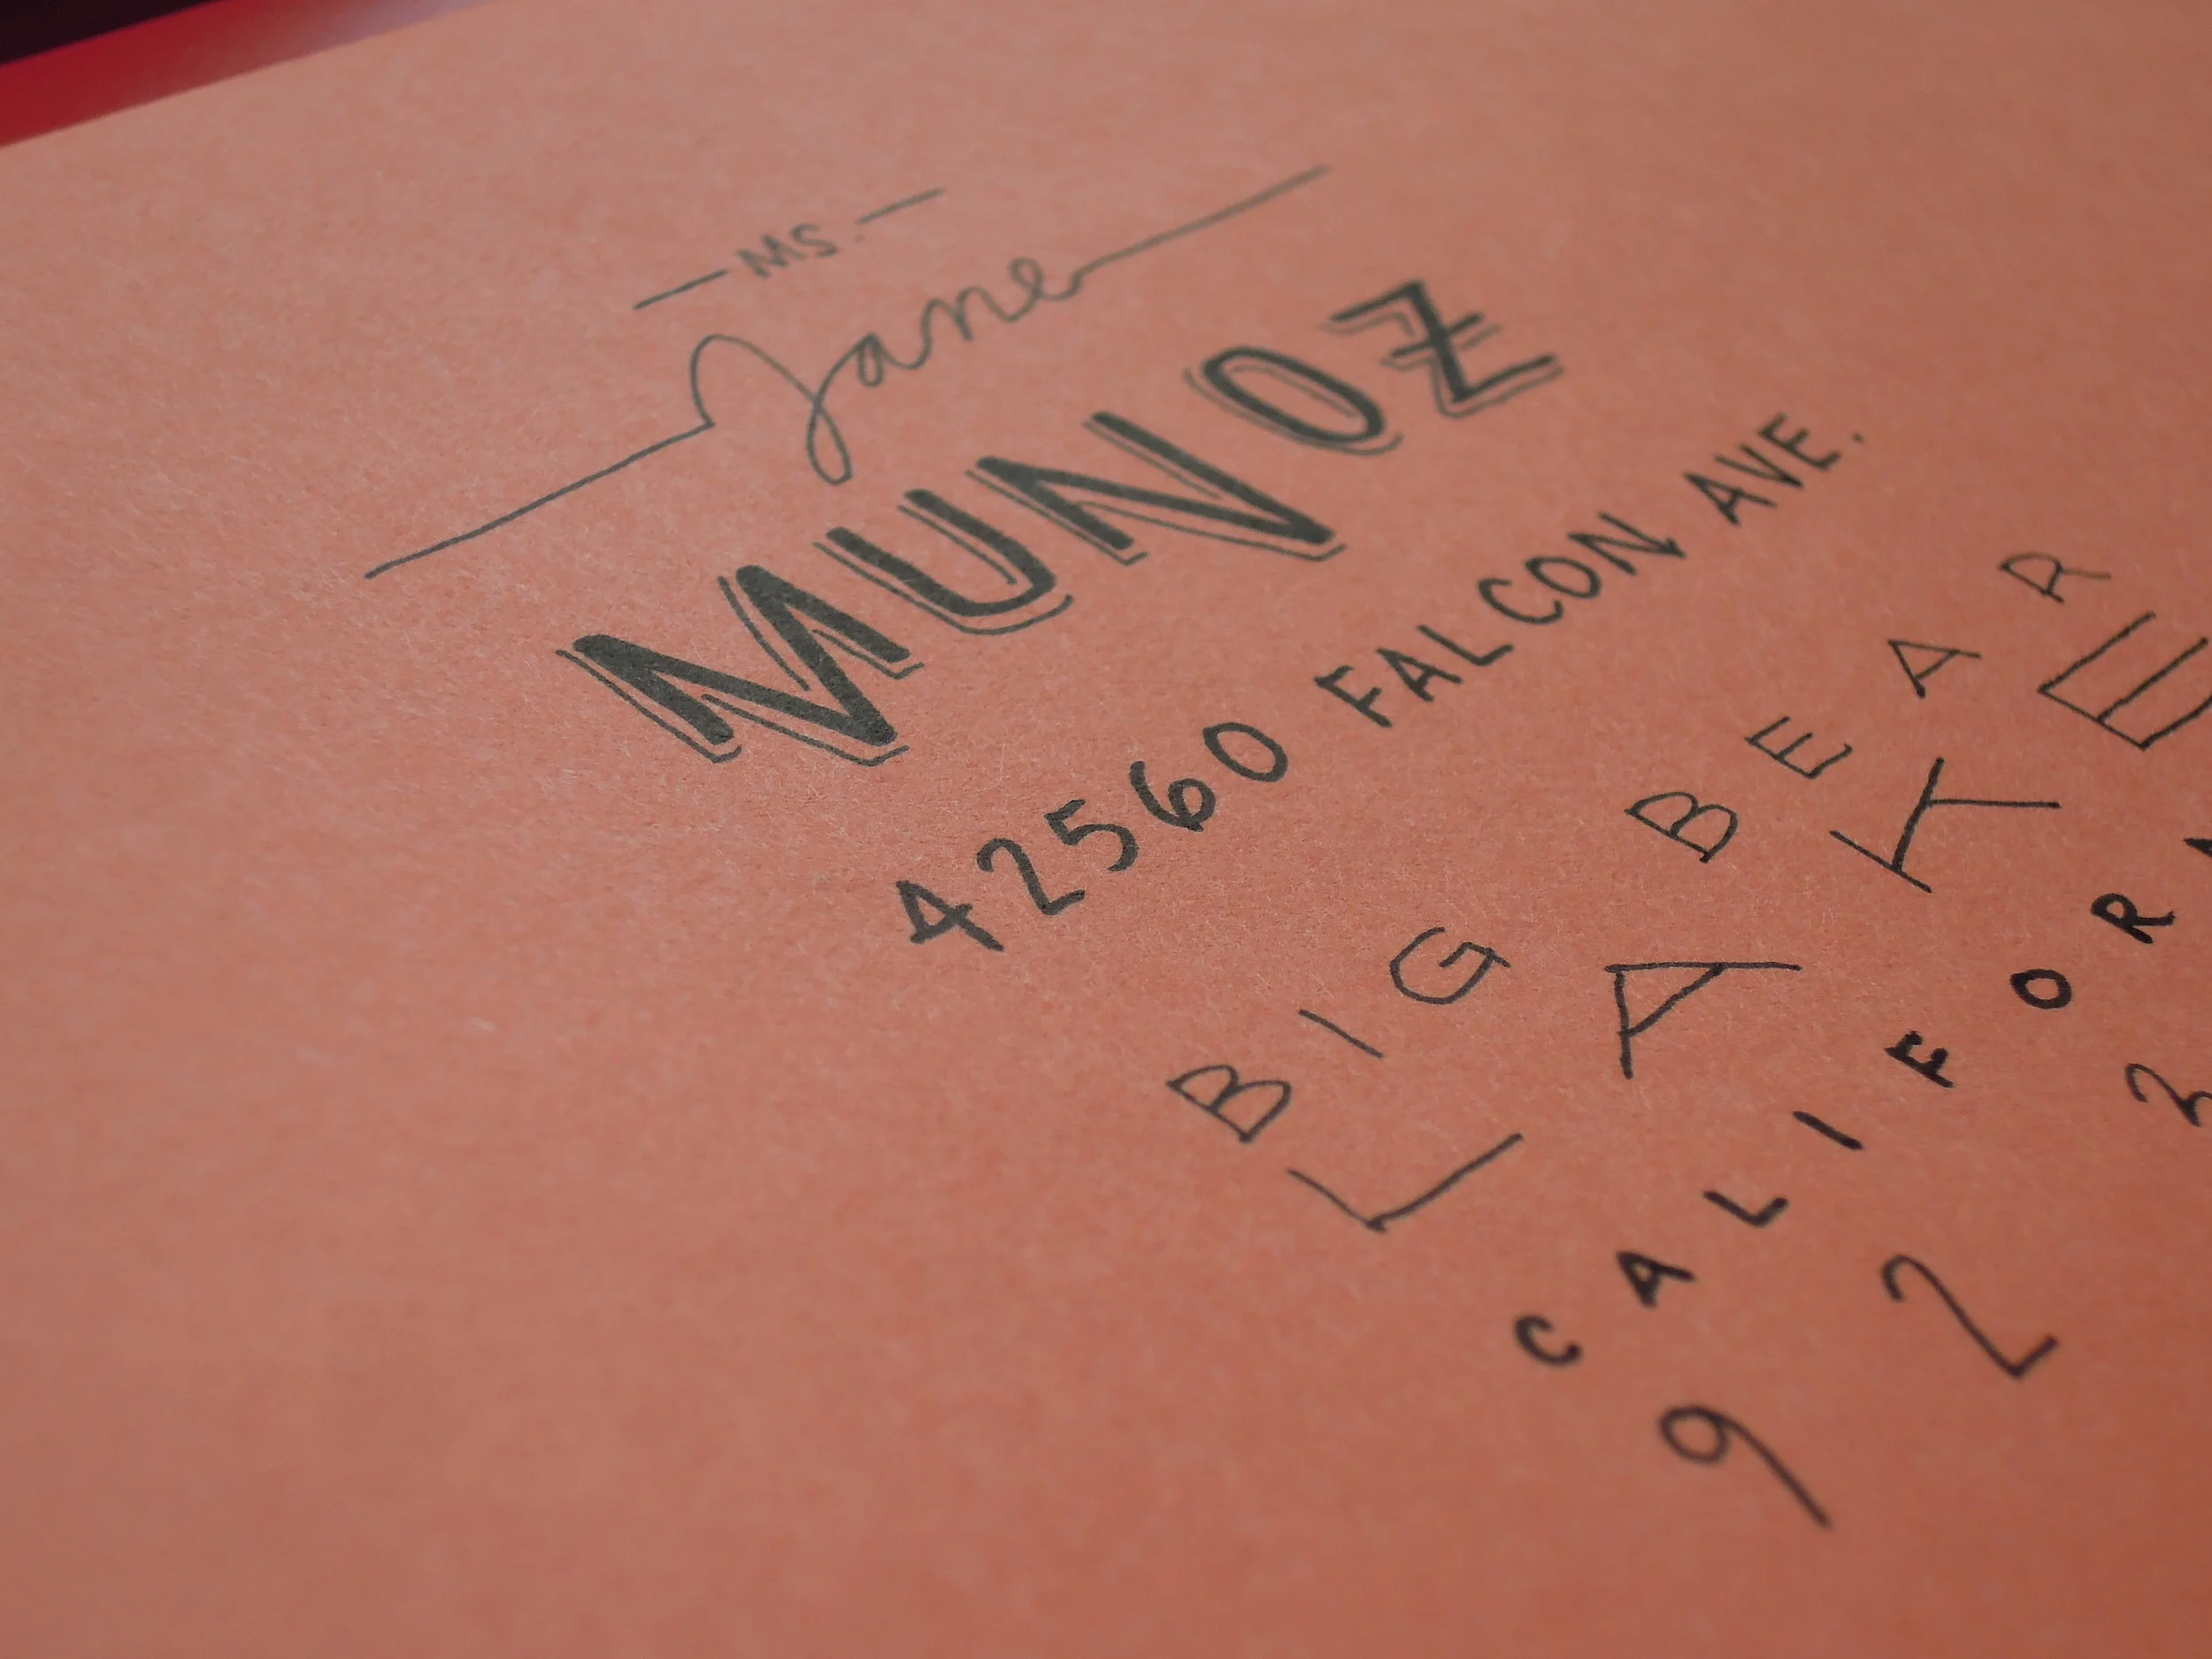 — MS. —
Jane
MUNOZ
42560 FALCON AVE.
BIG BEAR
LAKE
CALIFOR
923